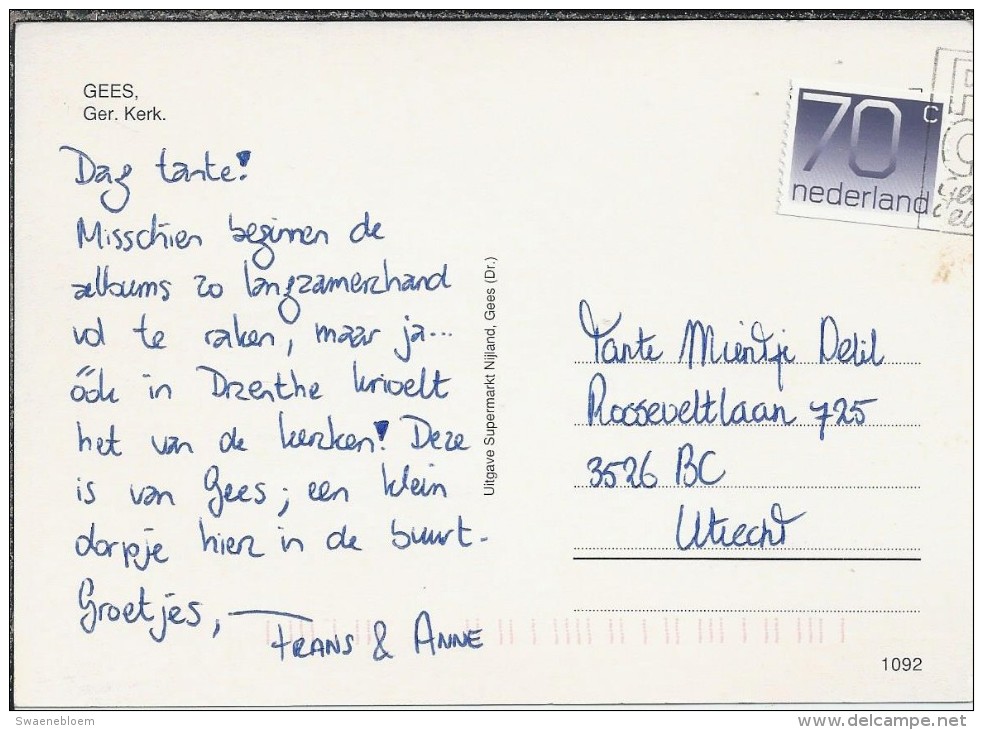 GEES,
Ger. Kerk.
Dag tante!
Misschien beginnen de
albums zo langzamerhand
vol te raken, maar ja...
óók in Drenthe krioelt
het van de kerken! Deze
is van Gees; een klein
dorpje hier in de buurt.
Groetjes,
FRANS & ANNE
Uitgave Supermarkt Nijland, Gees (Dr.)
70 c
nederland
Tante Mientje Delil
Rooseveltlaan 725
3526 BC
Utrecht
1092
Swaenebloem
www.delcampe.net